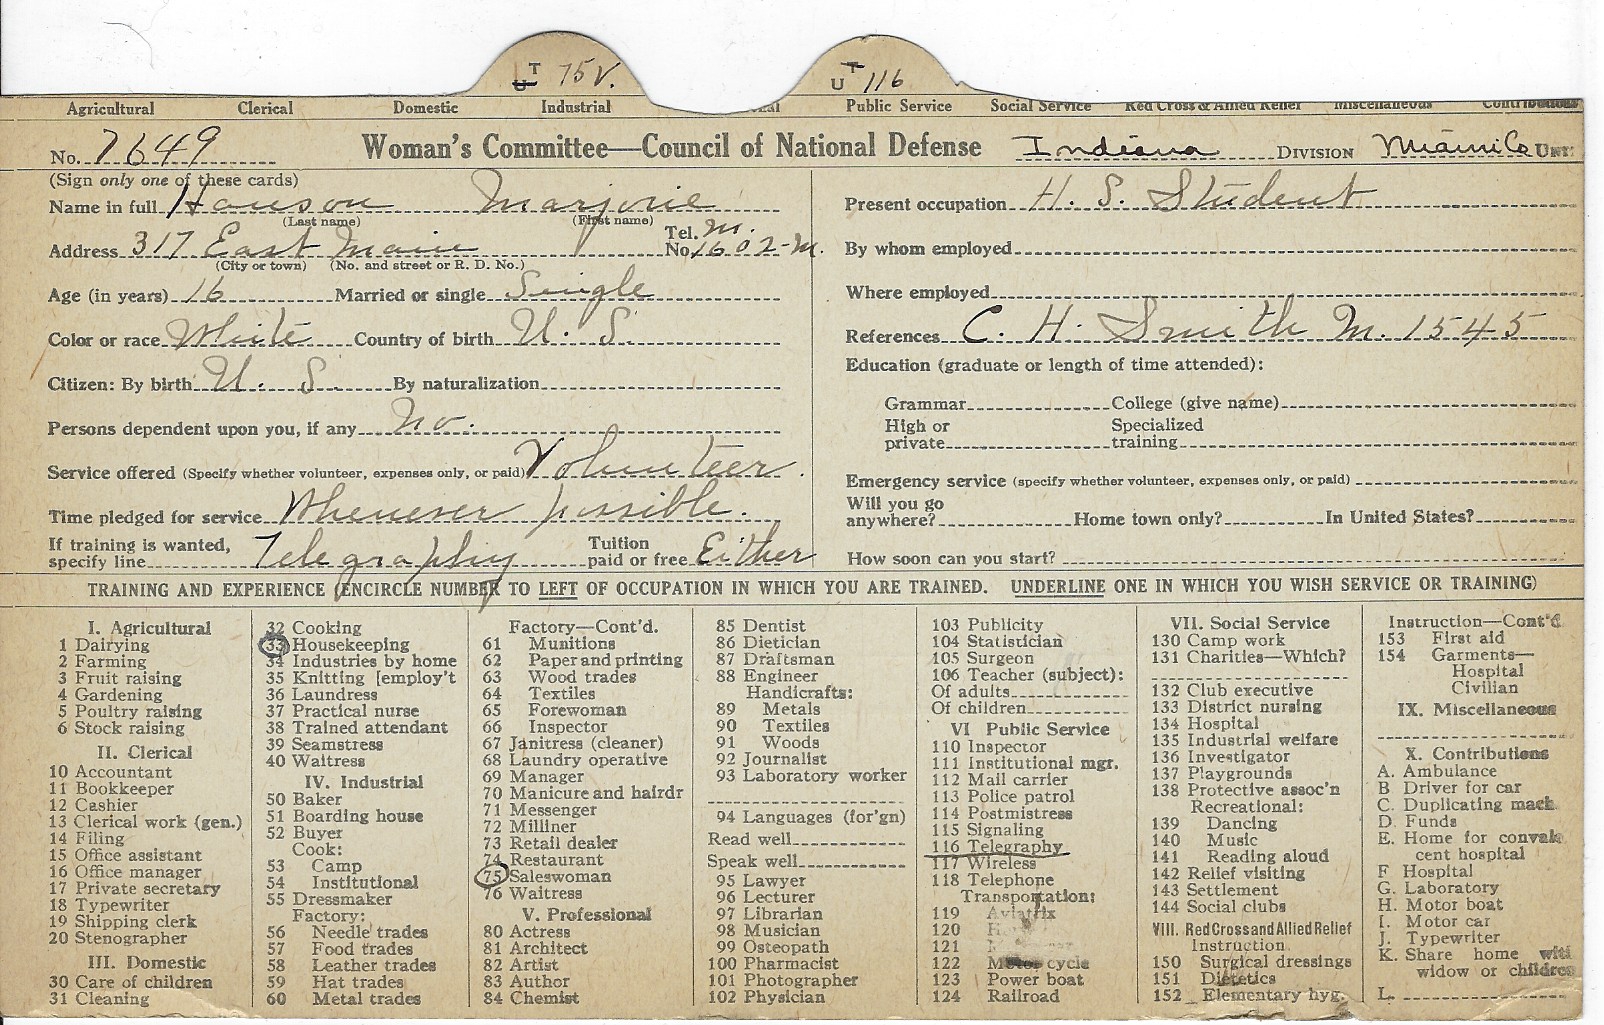 UT 75 V.
UT 116
Agricultural Clerical Domestic Industrial Public Service Social Service Red Cross & Allied Relief Miscellaneous Contributions
No. 7649 Woman's Committee—Council of National Defense Indiana DIVISION Miami Co UNIT
(Sign only one of these cards)
Name in full Hanson Marjorie
(Last name) (First name)
Address 317 East Main Tel. No. M. 1602-M.
(City or town) (No. and street or R. D. No.)
Age (in years) 16 Married or single Single
Color or race White Country of birth U. S.
Citizen: By birth U. S. By naturalization
Persons dependent upon you, if any No.
Service offered (Specify whether volunteer, expenses only, or paid) Volunteer.
Time pledged for service Whenever possible.
If training is wanted, specify line Telegraphy Tuition paid or free Either
Present occupation H. S. Student
By whom employed
Where employed
References C. H. Smith M. 1545
Education (graduate or length of time attended):
Grammar College (give name)
High or private Specialized training
Emergency service (specify whether volunteer, expenses only, or paid)
Will you go anywhere? Home town only? In United States?
How soon can you start?
TRAINING AND EXPERIENCE (ENCIRCLE NUMBER TO LEFT OF OCCUPATION IN WHICH YOU ARE TRAINED. UNDERLINE ONE IN WHICH YOU WISH SERVICE OR TRAINING)
I. Agricultural
1 Dairying
2 Farming
3 Fruit raising
4 Gardening
5 Poultry raising
6 Stock raising
II. Clerical
10 Accountant
11 Bookkeeper
12 Cashier
13 Clerical work (gen.)
14 Filing
15 Office assistant
16 Office manager
17 Private secretary
18 Typewriter
19 Shipping clerk
20 Stenographer
III. Domestic
30 Care of children
31 Cleaning
32 Cooking
33 Housekeeping
34 Industries by home
35 Knitting [employ't
36 Laundress
37 Practical nurse
38 Trained attendant
39 Seamstress
40 Waitress
IV. Industrial
50 Baker
51 Boarding house
52 Buyer
Cook:
53 Camp
54 Institutional
55 Dressmaker
Factory:
56 Needle trades
57 Food trades
58 Leather trades
59 Hat trades
60 Metal trades
Factory—Cont'd.
61 Munitions
62 Paper and printing
63 Wood trades
64 Textiles
65 Forewoman
66 Inspector
67 Janitress (cleaner)
68 Laundry operative
69 Manager
70 Manicure and hairdr
71 Messenger
72 Milliner
73 Retail dealer
74 Restaurant
75 Saleswoman
76 Waitress
V. Professional
80 Actress
81 Architect
82 Artist
83 Author
84 Chemist
85 Dentist
86 Dietician
87 Draftsman
88 Engineer
Handicrafts:
89 Metals
90 Textiles
91 Woods
92 Journalist
93 Laboratory worker
94 Languages (for'gn)
Read well
Speak well
95 Lawyer
96 Lecturer
97 Librarian
98 Musician
99 Osteopath
100 Pharmacist
101 Photographer
102 Physician
103 Publicity
104 Statistician
105 Surgeon
106 Teacher (subject):
Of adults
Of children
VI Public Service
110 Inspector
111 Institutional mgr.
112 Mail carrier
113 Police patrol
114 Postmistress
115 Signaling
116 Telegraphy
117 Wireless
118 Telephone
Transportation:
119 Aviatrix
120
121
122 Motor cycle
123 Power boat
124 Railroad
VII. Social Service
130 Camp work
131 Charities—Which?
132 Club executive
133 District nursing
134 Hospital
135 Industrial welfare
136 Investigator
137 Playgrounds
138 Protective assoc'n
Recreational:
139 Dancing
140 Music
141 Reading aloud
142 Relief visiting
143 Settlement
144 Social clubs
VIII. Red Cross and Allied Relief
Instruction
150 Surgical dressings
151 Dietetics
152 Elementary hyg.
Instruction—Cont'd
153 First aid
154 Garments—
Hospital
Civilian
IX. Miscellaneous
X. Contributions
A. Ambulance
B Driver for car
C. Duplicating mach.
D. Funds
E. Home for convales
cent hospital
F Hospital
G. Laboratory
H. Motor boat
I. Motor car
J. Typewriter
K. Share home with
widow or children
L.